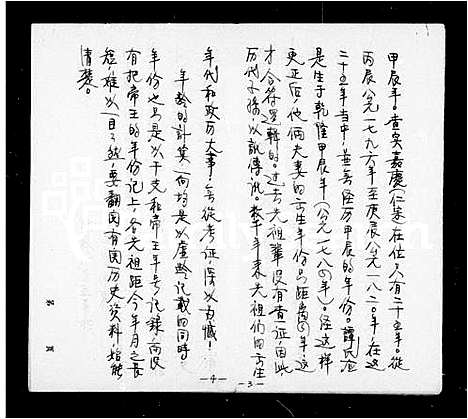 甲辰年。查实嘉庆(仁宗)在位只有二十五年。从
丙辰公元一七九六年至庚辰公元一八二〇年，在这
二十五年当中，并无经历甲辰的年份。谭氏应
是生于乾隆甲辰年(公元一七八四年)。经这样
更正后，他俩夫妻的出生年份只距离 年，这
才合符逻辑的。过去先祖辈没有查证，因此，
历代文稿以讹传讹。数千年来先祖们的出生
年代和政历大事，无从考证深以为憾，
年龄的计算一向均是以虚龄记载的同时
年份也只是以干支和帝王年号记录，而没
有把帝王的年份记上，各先祖距今年月之长
短，难以一目了然，要翻阅有关历史资料始能
清楚。
—3—
—4—
第 页